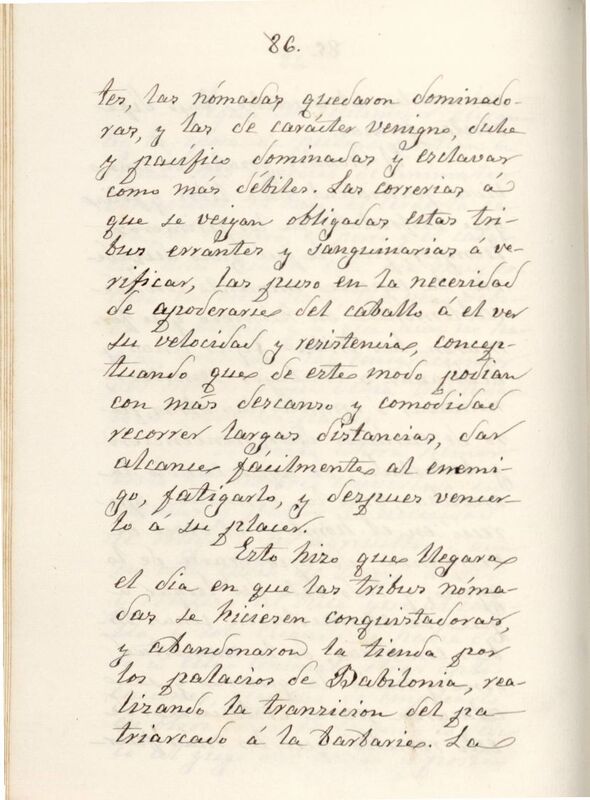 86.
tes, las nómadas quedaron dominado-
ras, y las de carácter venigno, dulce
y pacífico dominadas y esclavas
como más débiles. Las correrias á
que se veiyan obligadas estas tri-
bus errantes y sanguinarias á ve-
rificar, las puso en la necesidad
de apoderarse del caballo á el ver
su velocidad y resistencia, concep-
tuando que de este modo podian
con más descanso y comodidad
recorrer largas distancias, dar
alcance fácilmente al enemi-
go, fatigarlo, y despues vencer-
lo á su placer.
Esto hizo que llegara
el dia en que las tribus nóma-
das se hiciesen conquistadoras,
y abandonaron la tienda por
los palacios de Babilonia, rea-
lizando la tranzicion del pa-
triarcado á la barbarie. La